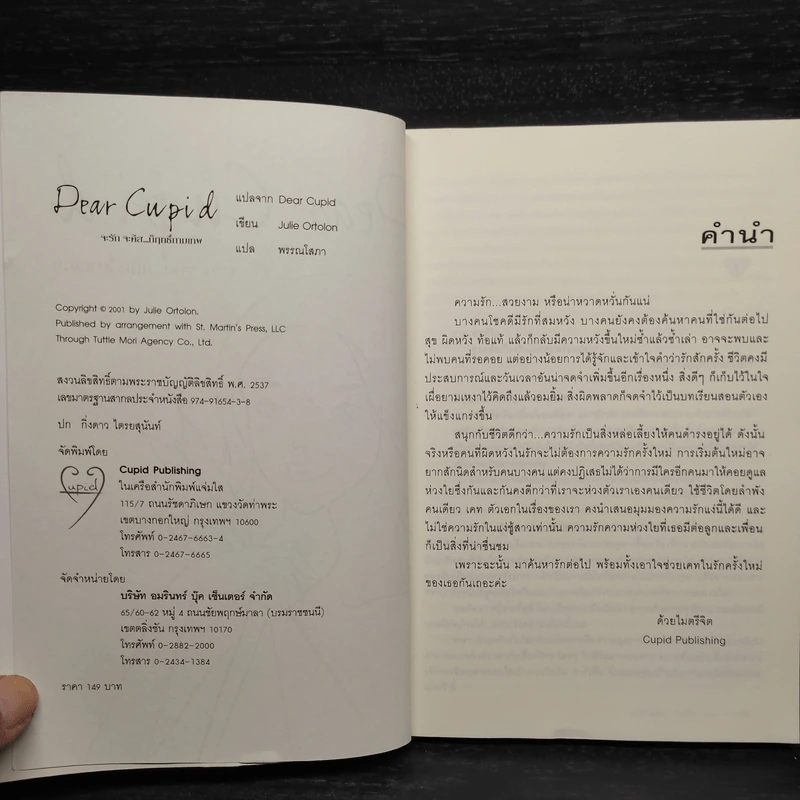 Dear Cupid
จะรัก จะคิส...ภิฤทธิ์กามเทพ
แปลจาก Dear Cupid
เขียน Julie Ortolon
แปล พรรณโสภา
Copyright © 2001 by Julie Ortolon,
Published by arrangement with St. Martin's Press, LLC
Through Tuttle Mori Agency Co., Ltd.
สงวนลิขสิทธิ์ตามพระราชบัญญัติลิขสิทธิ์ พ.ศ. 2537
เลขมาตรฐานสากลประจำหนังสือ 974-91654-3-8
ปก กิ่งดาว ไตรยสุนันท์
จัดพิมพ์โดย
Cupid
Cupid Publishing
ในเครือสำนักพิมพ์แจ่มใส
115/7 ถนนรัชดาภิเษก แขวงวัดท่าพระ
เขตบางกอกใหญ่ กรุงเทพฯ 10600
โทรศัพท์ 0-2467-6663-4
โทรสาร 0-2467-6665
จัดจำหน่ายโดย
บริษัท อมรินทร์ บุ๊ค เซ็นเตอร์ จำกัด
65/60-62 หมู่ 4 ถนนชัยพฤกษ์มาลา (บรมราชชนนี)
เขตตลิ่งชัน กรุงเทพฯ 10170
โทรศัพท์ 0-2882-2000
โทรสาร 0-2434-1384
ราคา 149 บาท
คำนำ
ความรัก...สวยงาม หรือน่าหวาดหวั่นกันแน่
บางคนโชคดีมีรักที่สมหวัง บางคนยังคงต้องค้นหาคนที่ใช่กันต่อไป
สุข ผิดหวัง ท้อแท้ แล้วก็กลับมีความหวังขึ้นใหม่ซ้ำแล้วซ้ำเล่า อาจจะพบและ
ไม่พบคนที่รอคอย แต่อย่างน้อยการได้รู้จักและเข้าใจคำว่ารักสักครั้ง ชีวิตคงมี
ประสบการณ์และวันเวลาอันน่าจดจำเพิ่มขึ้นอีกเรื่องหนึ่ง สิ่งดีๆ ก็เก็บไว้ในใจ
เผื่อยามเหงาไว้คิดถึงแล้วอมยิ้ม สิ่งผิดพลาดก็จดจำไว้เป็นบทเรียนสอนตัวเอง
ให้แข็งแกร่งขึ้น
สนุกกับชีวิตดีกว่า...ความรักเป็นสิ่งหล่อเลี้ยงให้คนดำรงอยู่ได้ ดังนั้น
จริงหรือคนที่ผิดหวังในรักจะไม่ต้องการความรักครั้งใหม่ การเริ่มต้นใหม่อาจ
ยากสักนิดสำหรับคนบางคน แต่คงปฏิเสธไม่ได้ว่าการมีใครอีกคนมาให้คอยดูแล
ห่วงใยซึ่งกันและกันคงดีกว่าที่เราจะห่วงตัวเราเองคนเดียว ใช้ชีวิตโดยลำพัง
คนเดียว เคท ตัวเอกในเรื่องของเรา คงนำเสนอมุมมองความรักแง่นี้ได้ดี และ
ไม่ใช่ความรักในแง่ชู้สาวเท่านั้น ความรักความห่วงใยที่เธอมีต่อลูกและเพื่อน
ก็เป็นสิ่งที่น่าชื่นชม
เพราะฉะนั้น มาค้นหารักต่อไป พร้อมทั้งเอาใจช่วยเคทในรักครั้งใหม่
ของเธอกันเถอะค่ะ
ด้วยไมตรีจิต
Cupid Publishing